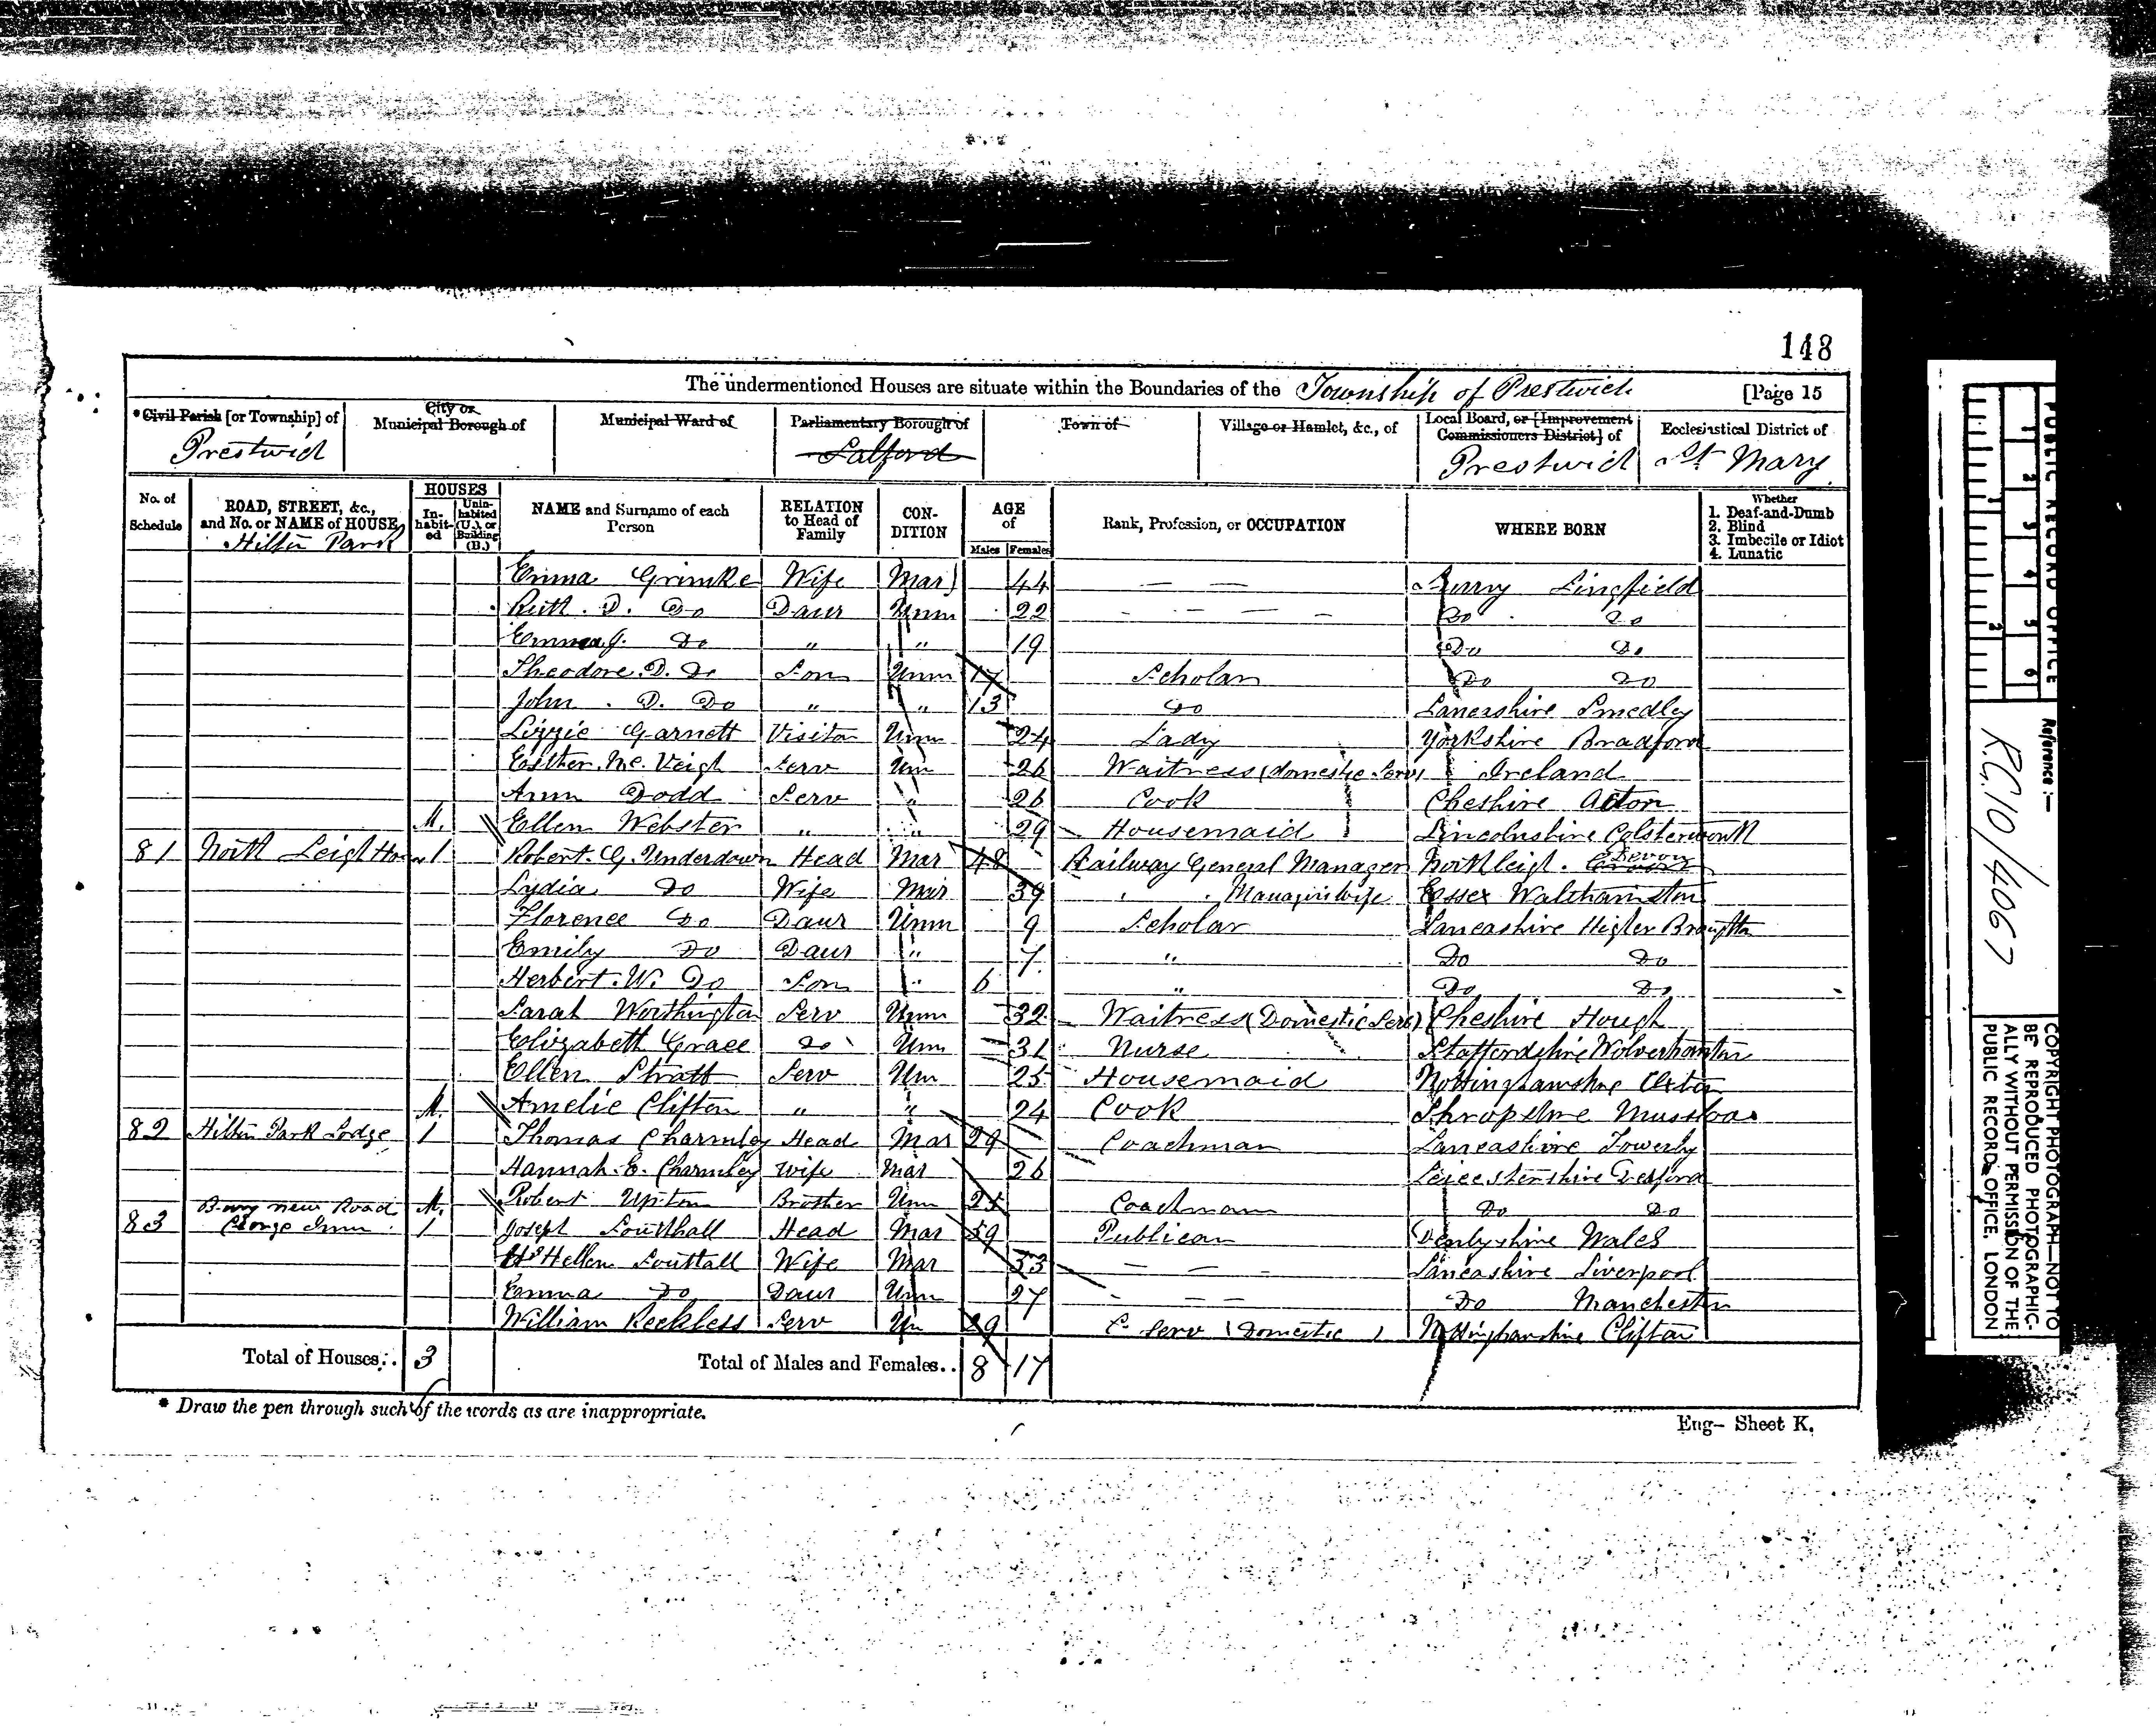 148
The undermentioned Houses are situate within the Boundaries of the Township of Prestwich [Page 15
*Civil Parish [or Township] of Prestwich
City or Municipal Borough of
Municipal Ward of
Parliamentary Borough of Salford
Town of
Village or Hamlet, &c., of
Local Board, or [Improvement Commissioners District] of Prestwich
Ecclesiastical District of St Mary
No. of Schedule
ROAD, STREET, &c., and No. or NAME of HOUSE
HOUSES
Inhabited
Uninhabited (U.), or Building (B.)
NAME and Surname of each Person
RELATION to Head of Family
CONDITION
AGE of
Males Females
Rank, Profession, or OCCUPATION
WHERE BORN
Whether
1. Deaf-and-Dumb
2. Blind
3. Imbecile or Idiot
4. Lunatic
Hilton Park
Emma Grimke Wife Mar 44 — — Surry Lingfield
Ruth. D. Do Daur Unm 22 - - - - Do Do
Emma J. Do " " 19 Do Do
Theodore. D. Do Son Unm 17 Scholar Do Do
John. D. Do " " 13 Do Lancashire Smedley
Lizzie Garnett Visitor Unm 24 Lady Yorkshire Bradford
Esther Mc. Veigh Serv Un 26 Waitress (domestic Serv) Ireland
Ann Dodd Serv " 26 Cook Cheshire Acton
M. Ellen Webster " " 29 Housemaid Lincolnshire Colsterworth
81 North Leigh House 1 Robert. G. Underdown Head Mar 48 Railway General Manager Northleigh. Devon
Lydia Do Wife Mar 39 " Managers wife Essex Walthamstow
Florence Do Daur Unm 9 Scholar Lancashire Higher Broughton
Emily Do Daur " 7 " Do Do
Herbert. W. Do Son " 6 " Do Do
Sarah Worthington Serv Unm 32 Waitress (Domestic Serv) Cheshire Hough
Elizabeth Grace Do Unm 31 Nurse Staffordshire Wolverhampton
Ellen Serv Un 25 Housemaid Nottinghamshire
M. Amelie Clifton " " 24 Cook Shropshire
82 Hilton Park Lodge 1 Thomas Charmley Head Mar 29 Coachman Lancashire
Hannah. E. Charmley Wife Mar 26 Leicestershire Desford
M. Robert Upton Brother Unm 25 Coachman Do Do
83 Bury new Road George Inn 1 Joseph Southall Head Mar 59 Publican Derbyshire Wales
Hellen Southall Wife Mar 53 — — — Lancashire Liverpool
Emma Do Daur Unm 27 - — — Do Manchester
William Reckless Serv Un 29 Serv (Domestic) Nottinghamshire Clifton
Total of Houses.. 3 Total of Males and Females.. 8 17
* Draw the pen through such of the words as are inappropriate.
Eng- Sheet K.
PUBLIC RECORD OFFICE
1 2 3 4 5 6
1 2
Reference :-
R.G. 10/4067
COPYRIGHT PHOTOGRAPH—NOT TO
BE REPRODUCED PHOTOGRAPHIC-
ALLY WITHOUT PERMISSION OF THE
PUBLIC RECORD OFFICE, LONDON